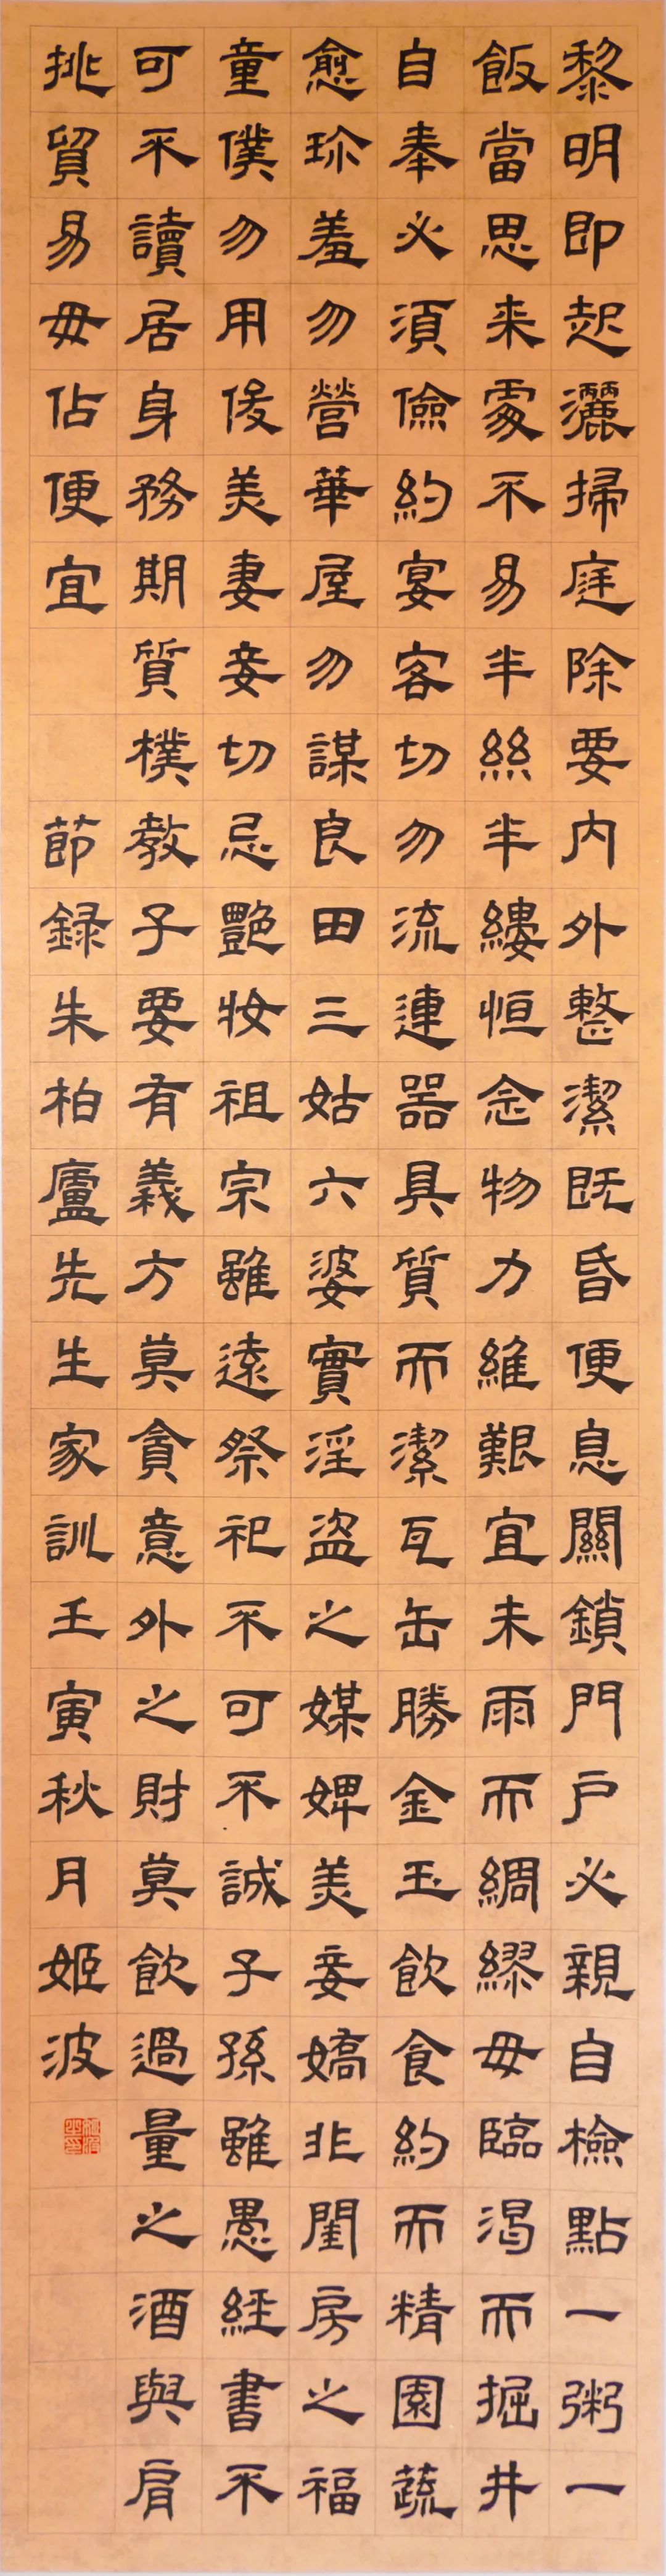 黎明即起灑掃庭除要内外整潔既昏便息關鎖門户必親自檢點一粥一
飯當思来處不易半絲半縷恒念物力維艱宜未雨而綢繆毋臨渴而掘井
自奉必須儉約宴客切勿流連器具質而潔瓦缶勝金玉飲食約而精園蔬
愈珍羞勿營華屋勿謀良田三姑六婆實淫盜之媒婢美妾嬌非閨房之福
童僕勿用俊美妻妾切忌艷妝祖宗雖遠祭祀不可不誠子孫雖愚經書不
可不讀居身務期質樸教子要有義方莫貪意外之財莫飲過量之酒與肩
挑貿易毋佔便宜
節録朱柏廬先生家訓壬寅秋月姬波